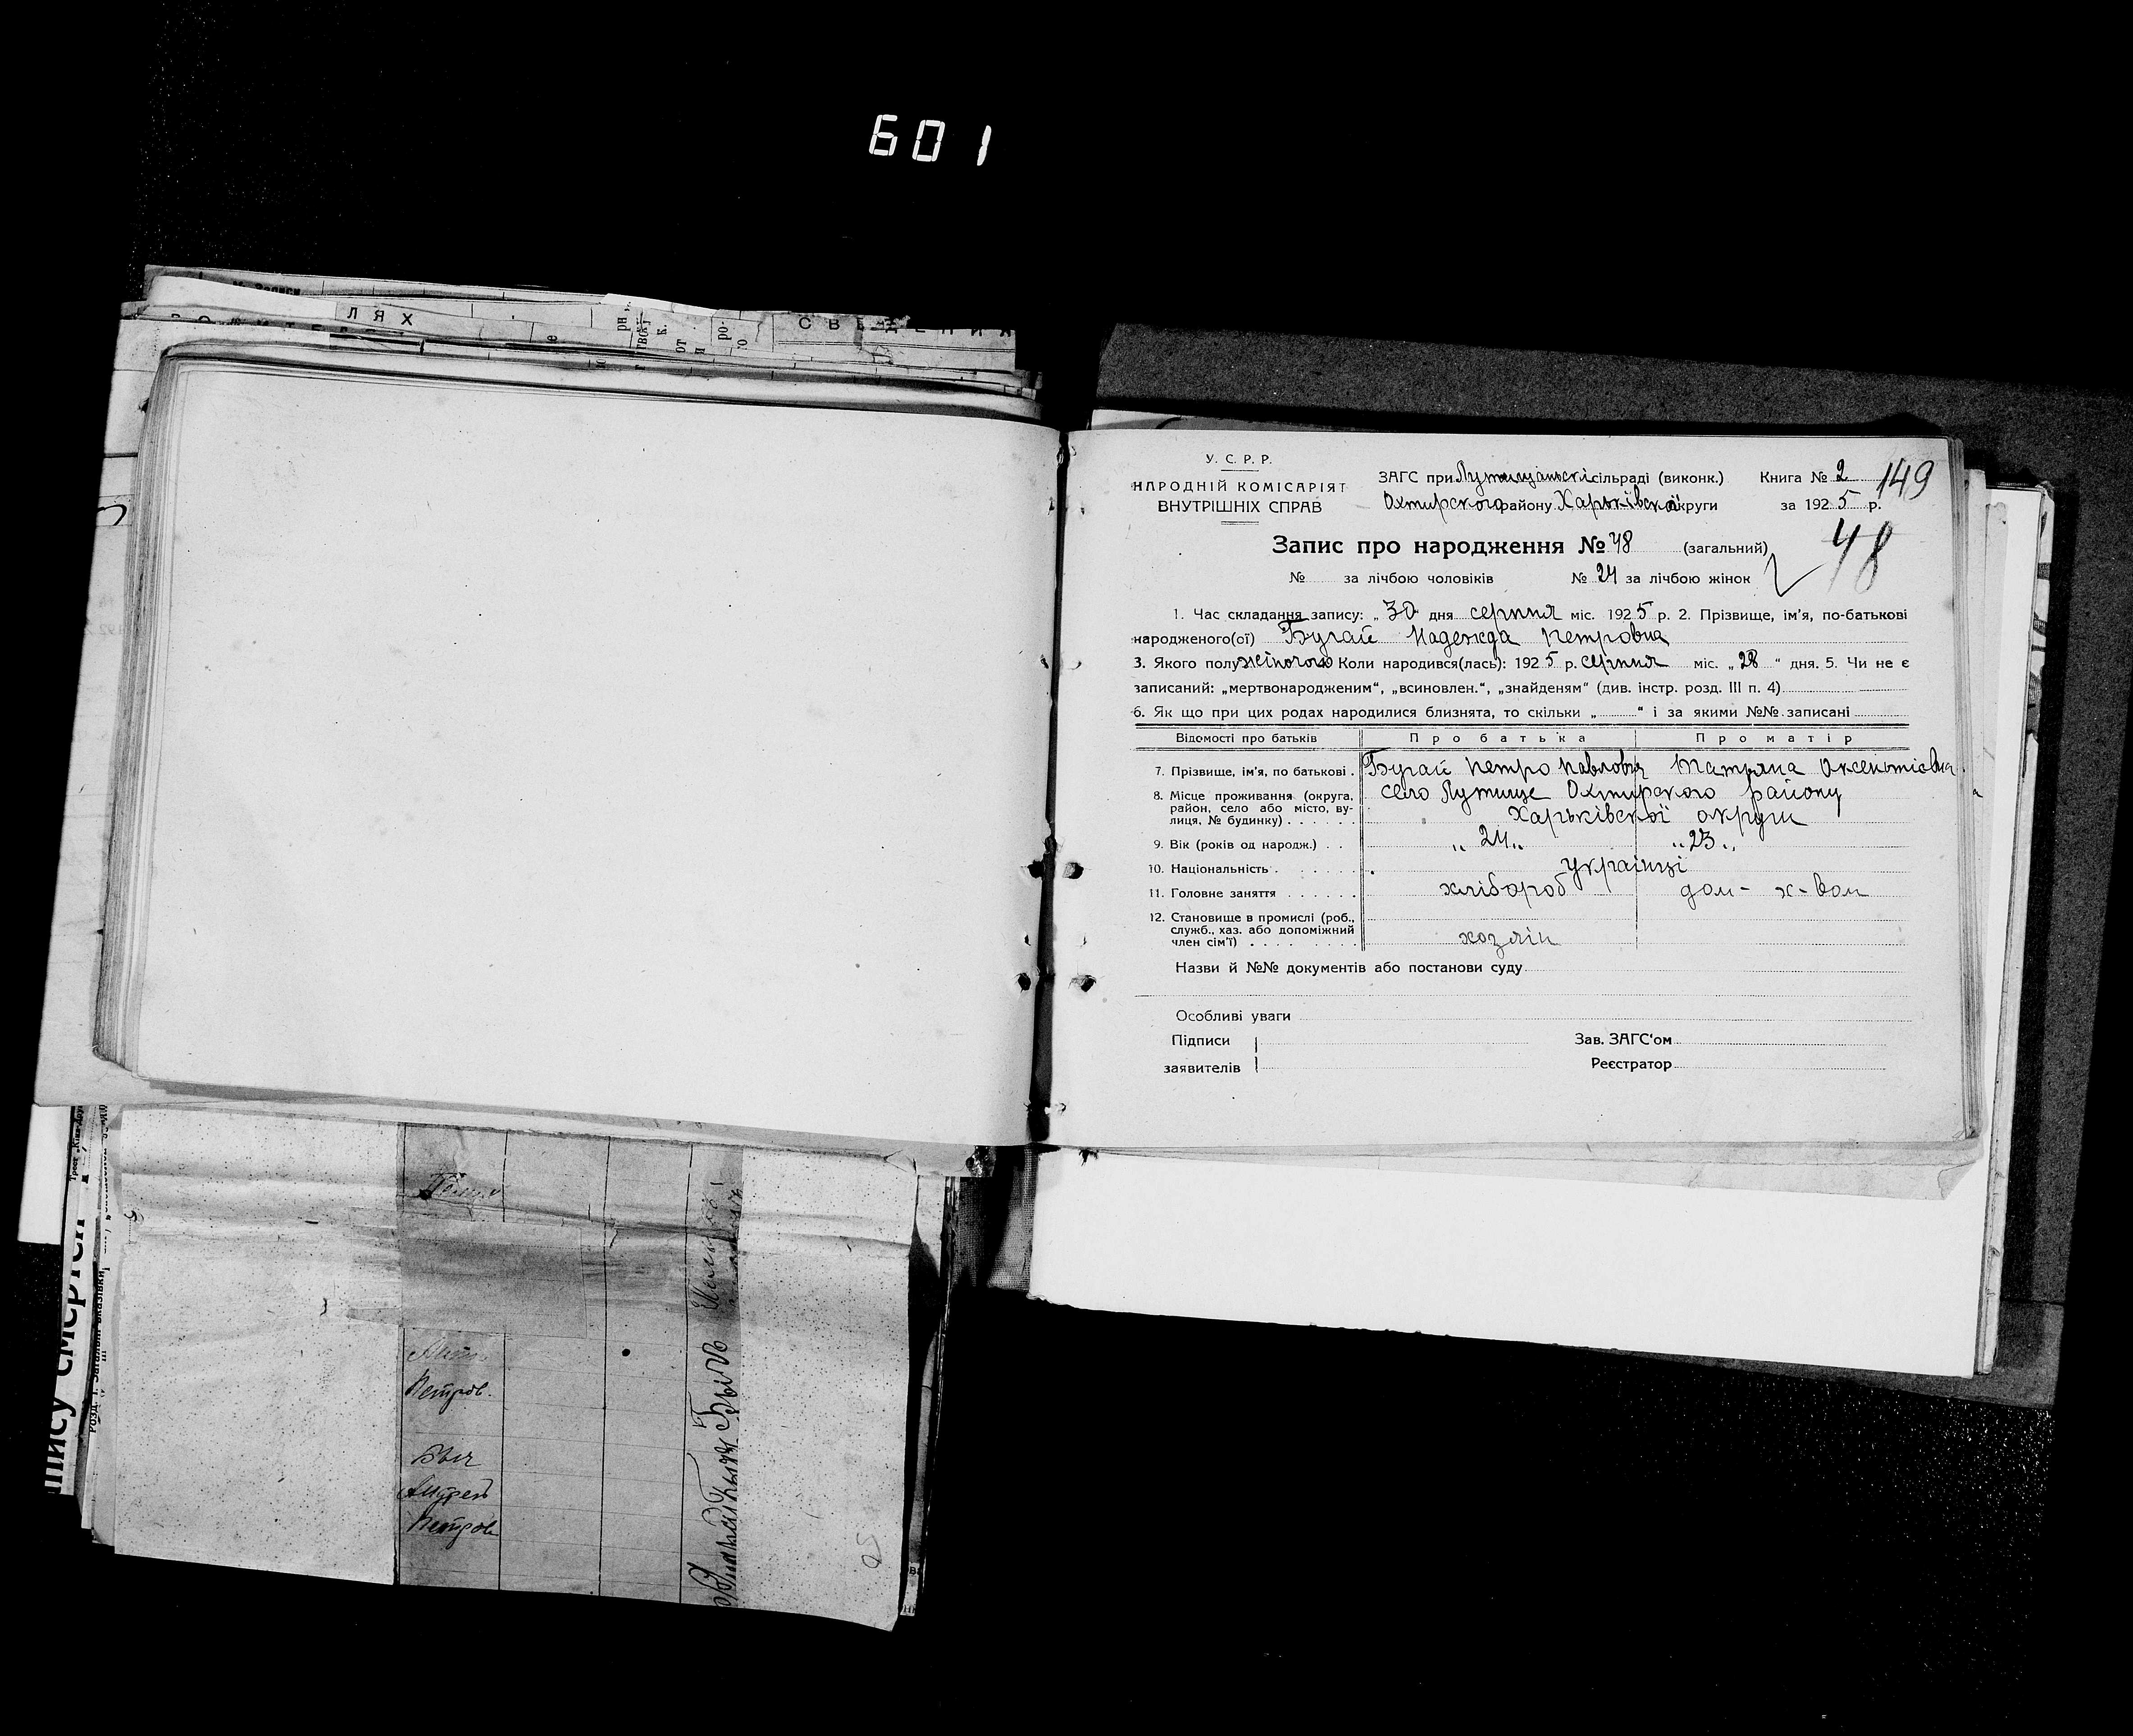 601
ЛЯХ
СВЕДЕНИЯ
У. С. Р. Р.
НАРОДНІЙ КОМІСАРІЯТ
ВНУТРІШНІХ СПРАВ
ЗАГС при Лутищанські сільраді (виконк.) Книга № 2 149
Охтирского району Харьківской округи за 1925 р.
Запис про народження № 48 (загальний) 48
№ за лічбою чоловіків № 24 за лічбою жінок
1. Час складання запису: „30 дня серпня міс. 1925 р. 2. Прізвище, ім'я, по-батькові
народженого(ої) Бугай Надежда Петровна
3. Якого полу жіночого Коли народився(лась): 1925 р. серпня міс. „28“ дня. 5. Чи не є
записаний: „мертвонародженим“, „всиновлен.“, „знайденям“ (див. інстр. розд. III п. 4)
6. Як що при цих родах народилися близнята, то скільки „ “ і за якими №№ записані
Відомості про батьків Про батька Про матір
7. Прізвище, ім'я, по батькові Бугай Петро Павлович Татряна Оксентієвна
8. Місце проживання (округа, район, село або місто, вулиця, № будинку) село Лутище Охтирского району
Харьківської округи
9. Вік (років од народж.) „24„ „23„
10. Національність українці
11. Головне заняття хлібороб дом-х-вом
12. Становище в промислі (роб., служб., хаз. або допоміжний член сім'ї) хозяїн
Назви й №№ документів або постанови суду
Особливі уваги
Підписи
заявителів
Зав. ЗАГС'ом
Реєстратор
Петров.
Андрей
Петров